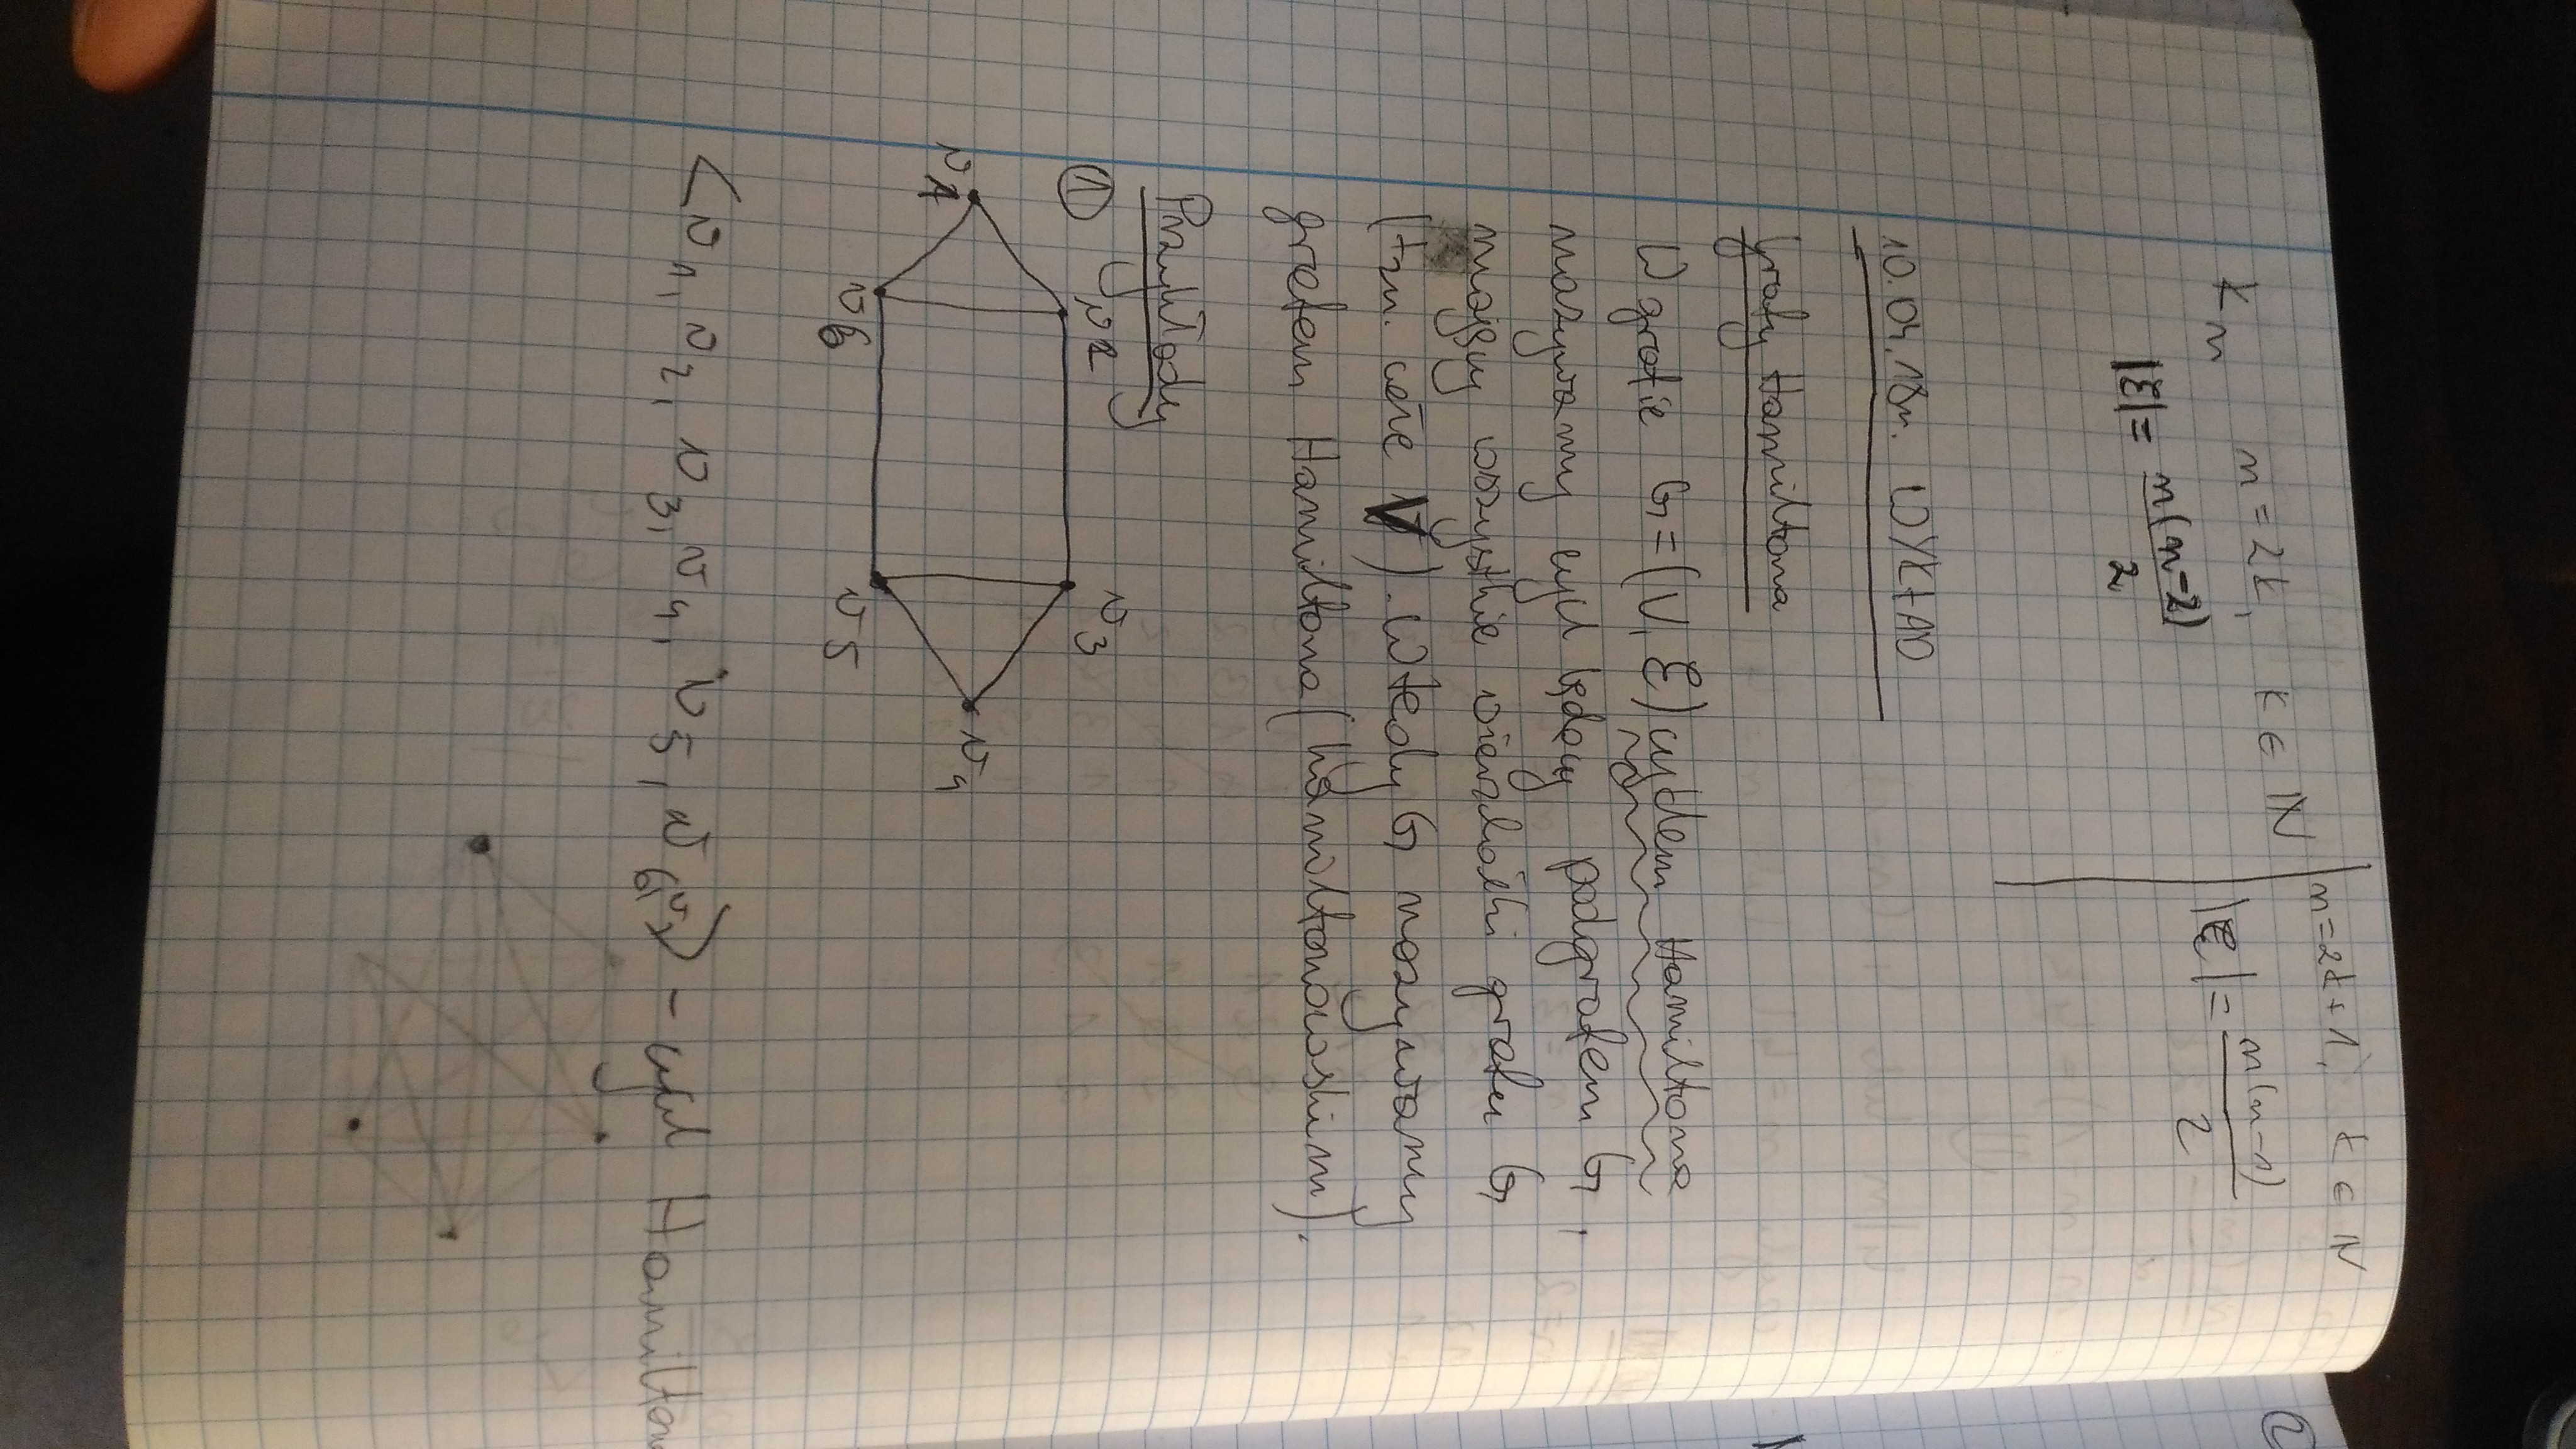 K_n n=2k, k ∈ ℕ
|E| = n(n-2)/2
n=2k+1, k ∈ ℕ
|E| = n(n-1)/2
10.04.18r. WYKŁAD
Grafy Hamiltona
W grafie G=(V, E) cyklem Hamiltona
nazywamy cykl będący podgrafem G,
mający wszystkie wierzchołki grafu G
(tzn. całe V). Wtedy G nazywamy
grafem Hamiltona (hamiltonowskim).
Przykłady
①
v2 v3
v1 v4
v6 v5
<v1, v2, v3, v4, v5, v6, v1> - cykl Hamiltona
②